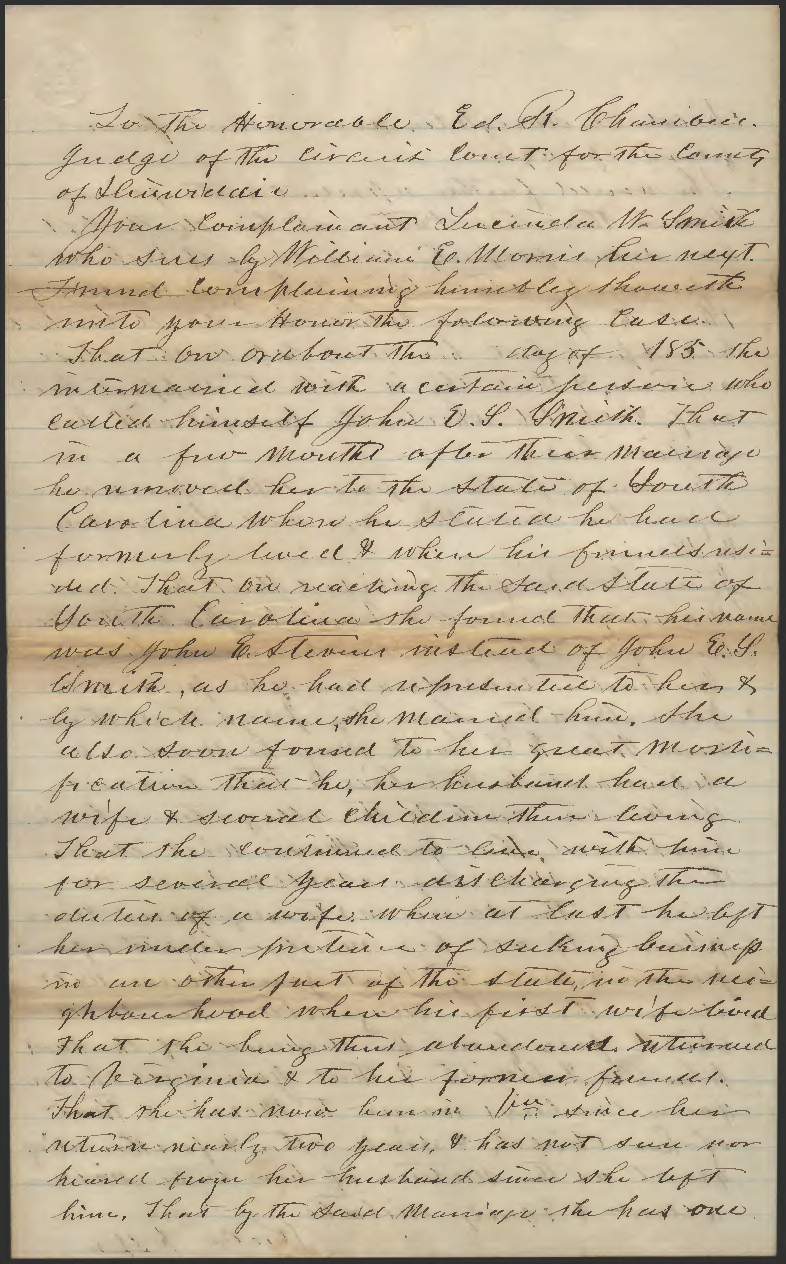 To the Honorable Ed. R. Chambers.
Judge of the Circuit Court for the County
of Dinwiddie
Your Complainant Lucinda W. Smith
who sues by William E. Morris her next
Friend Complaining humbly sheweth
unto your Honor the following Case.
That on or about the day of 185 she
intermarried with a certain person who
called himself John E. S. Smith. That
in a few months after their marriage
he removed her to the State of South
Carolina where he stated he had
formerly lived & where his friends resi=
ded. That on reaching the said State of
South Carolina she found that his name
was John E. Stevens instead of John E. S.
Smith, as he had represented to her &
by which name, she married him. She
also soon found to her great morti=
fication that he, her husband had a
wife & several children then living
That she continued to live with him
for several years discharging the
duties of a wife when at last he left
her under pretence of seeking business
in an other part of the state, in the nei=
ghbourhood where his first wife lived
That she being thus abandoned returned
to Virginia & to her former friends.
That she has now been in Va. since her
return nearly two years, & has not seen nor
heared from her husband since she left
him. That by the said marriage she has one